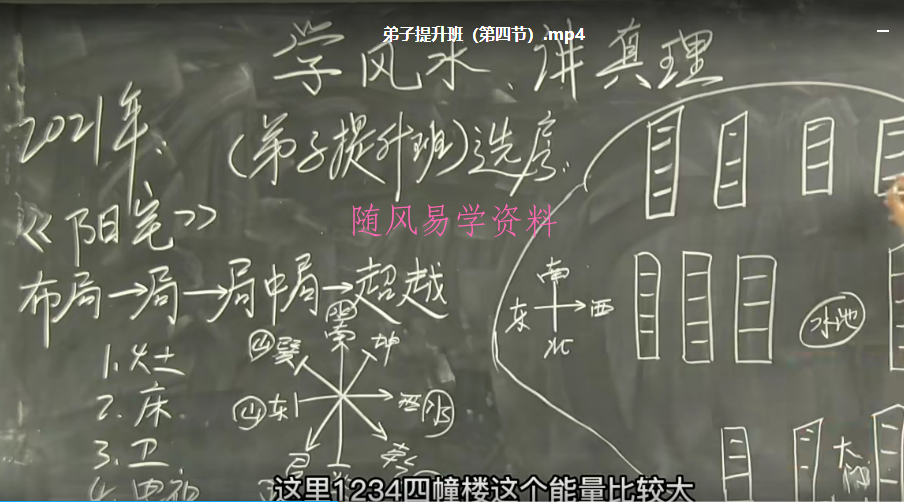 弟子提升班（第四节）.mp4
学风水、讲真理
2021年、
（弟子提升班）选房：
《阳宅》
随风易学资料
布局→局→局中局→超越
1.灶
2.床
3.卫
南
东 西
北
水池
山 巽
南
坤
山 东
西 水
大门
这里1234四幢楼这个能量比较大